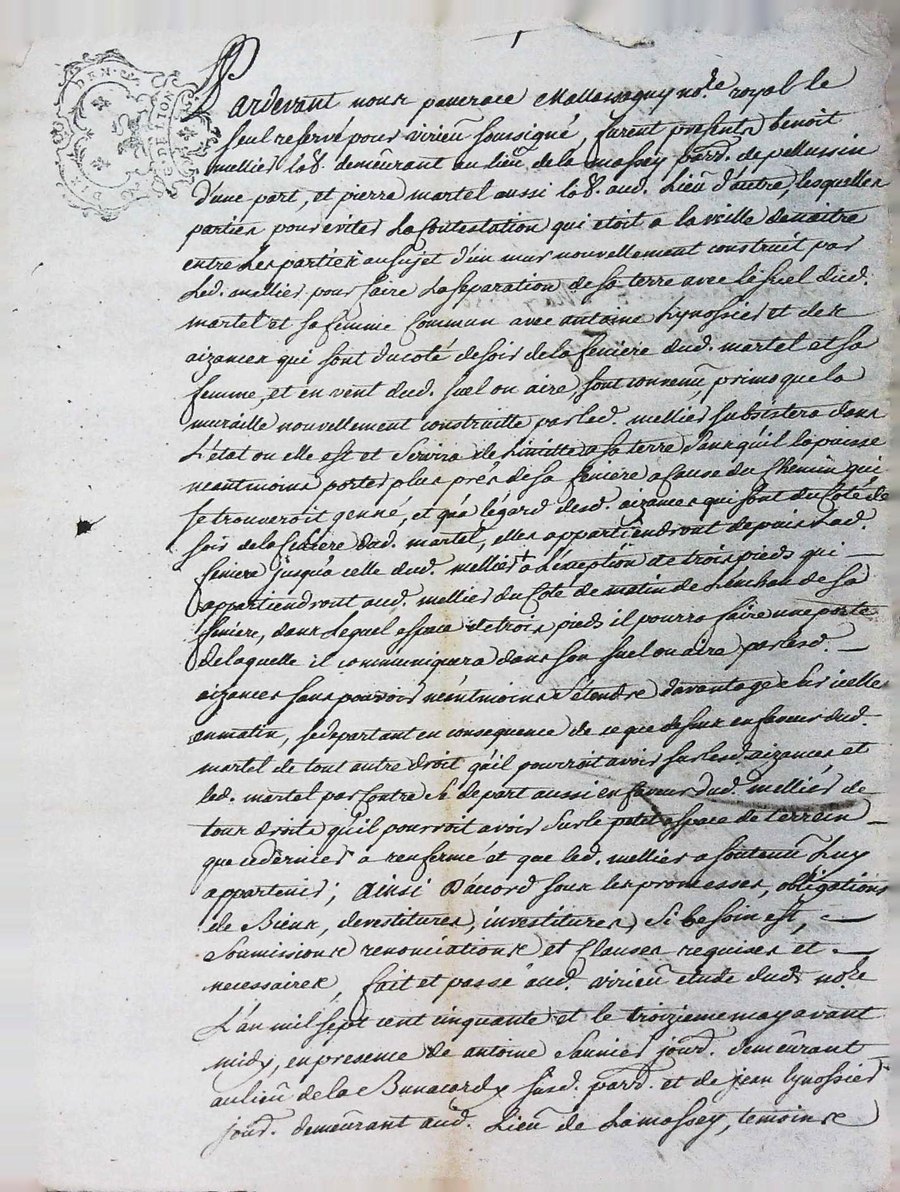 GN. DE LION
Pardevant nous panerace Mallassagny no.re royal le
seul reservé pour virieu soussigné, furent presents benoit
mellier lab.r demeurant au lieu de la massey parr. de pellussin
d'une part, et pierre martel aussi lab.r aud. Lieu d'autre, lesquelles
parties pour eviter La Contestation qui etoit a la veille de naitre
entre Les parties au Sujet d'un mur nouvellement construit par
Led. mellier pour faire La Separation de Sa terre avec le suel dud.
martel et sa femme Commun avec antoine Lynossier et des
aizances qui sont du coté de soir de la feniere dud. martel et sa
femme, et en vent dud. suel ou aire, sont convenu, primo que la
muraille nouvellement construitte par led. mellier subsistera dans
L'etat ou elle est et Servira de Limitte a sa terre sans qu'il la puisse
neantmoins porter plus prés de sa feniere a Cause du Chemin qui
se trouveroit genné, et qu'a légard desd. aizances qui sont du Coté de
soir de la feniere dud. martel, elles appartiendront depuis lad.
feniere jusqu'a celle dud. mellier a L'exeption de trois pieds qui
appartiendront aud. mellier du Coté de matin de L'embas de sa
feniere, dans Lequel espace de trois pieds il pourra faire une porte
de laquelle il communiquera dans son suel ou aire par lesd.
aizances sans pouvoir néantmoins s'étendre davantage sur icelles
en matin, se departant en consequence de ce que dessus en faveur dud.
martel de tout autre droit qu'il pourroit avoir sur lesd. aizances et
led. martel par Contre se départ aussi en faveur dud. mellier de
tous droits qu'il pourroit avoir Sur le petit espace de terrein
que ce dernier a renfermé et que led. mellier a soutenu Luy
appartenir; ainsi D'accord sous les promesses, obligations
de Biens, devestitures, investitures, Si besoin est,
Soumissions renonciations et Clauses requises et
necessaires, fait et passé aud. virieu etude dud. no.re
L'an mil sept cent cinquante et le troizieme may avant
midy, en presence de antoine Saunier jourd. demeurant
au lieu de la Bunacard susd. parr. et de jean Lynossier
jourd. demeurant aud. Lieu de La massey, temoins